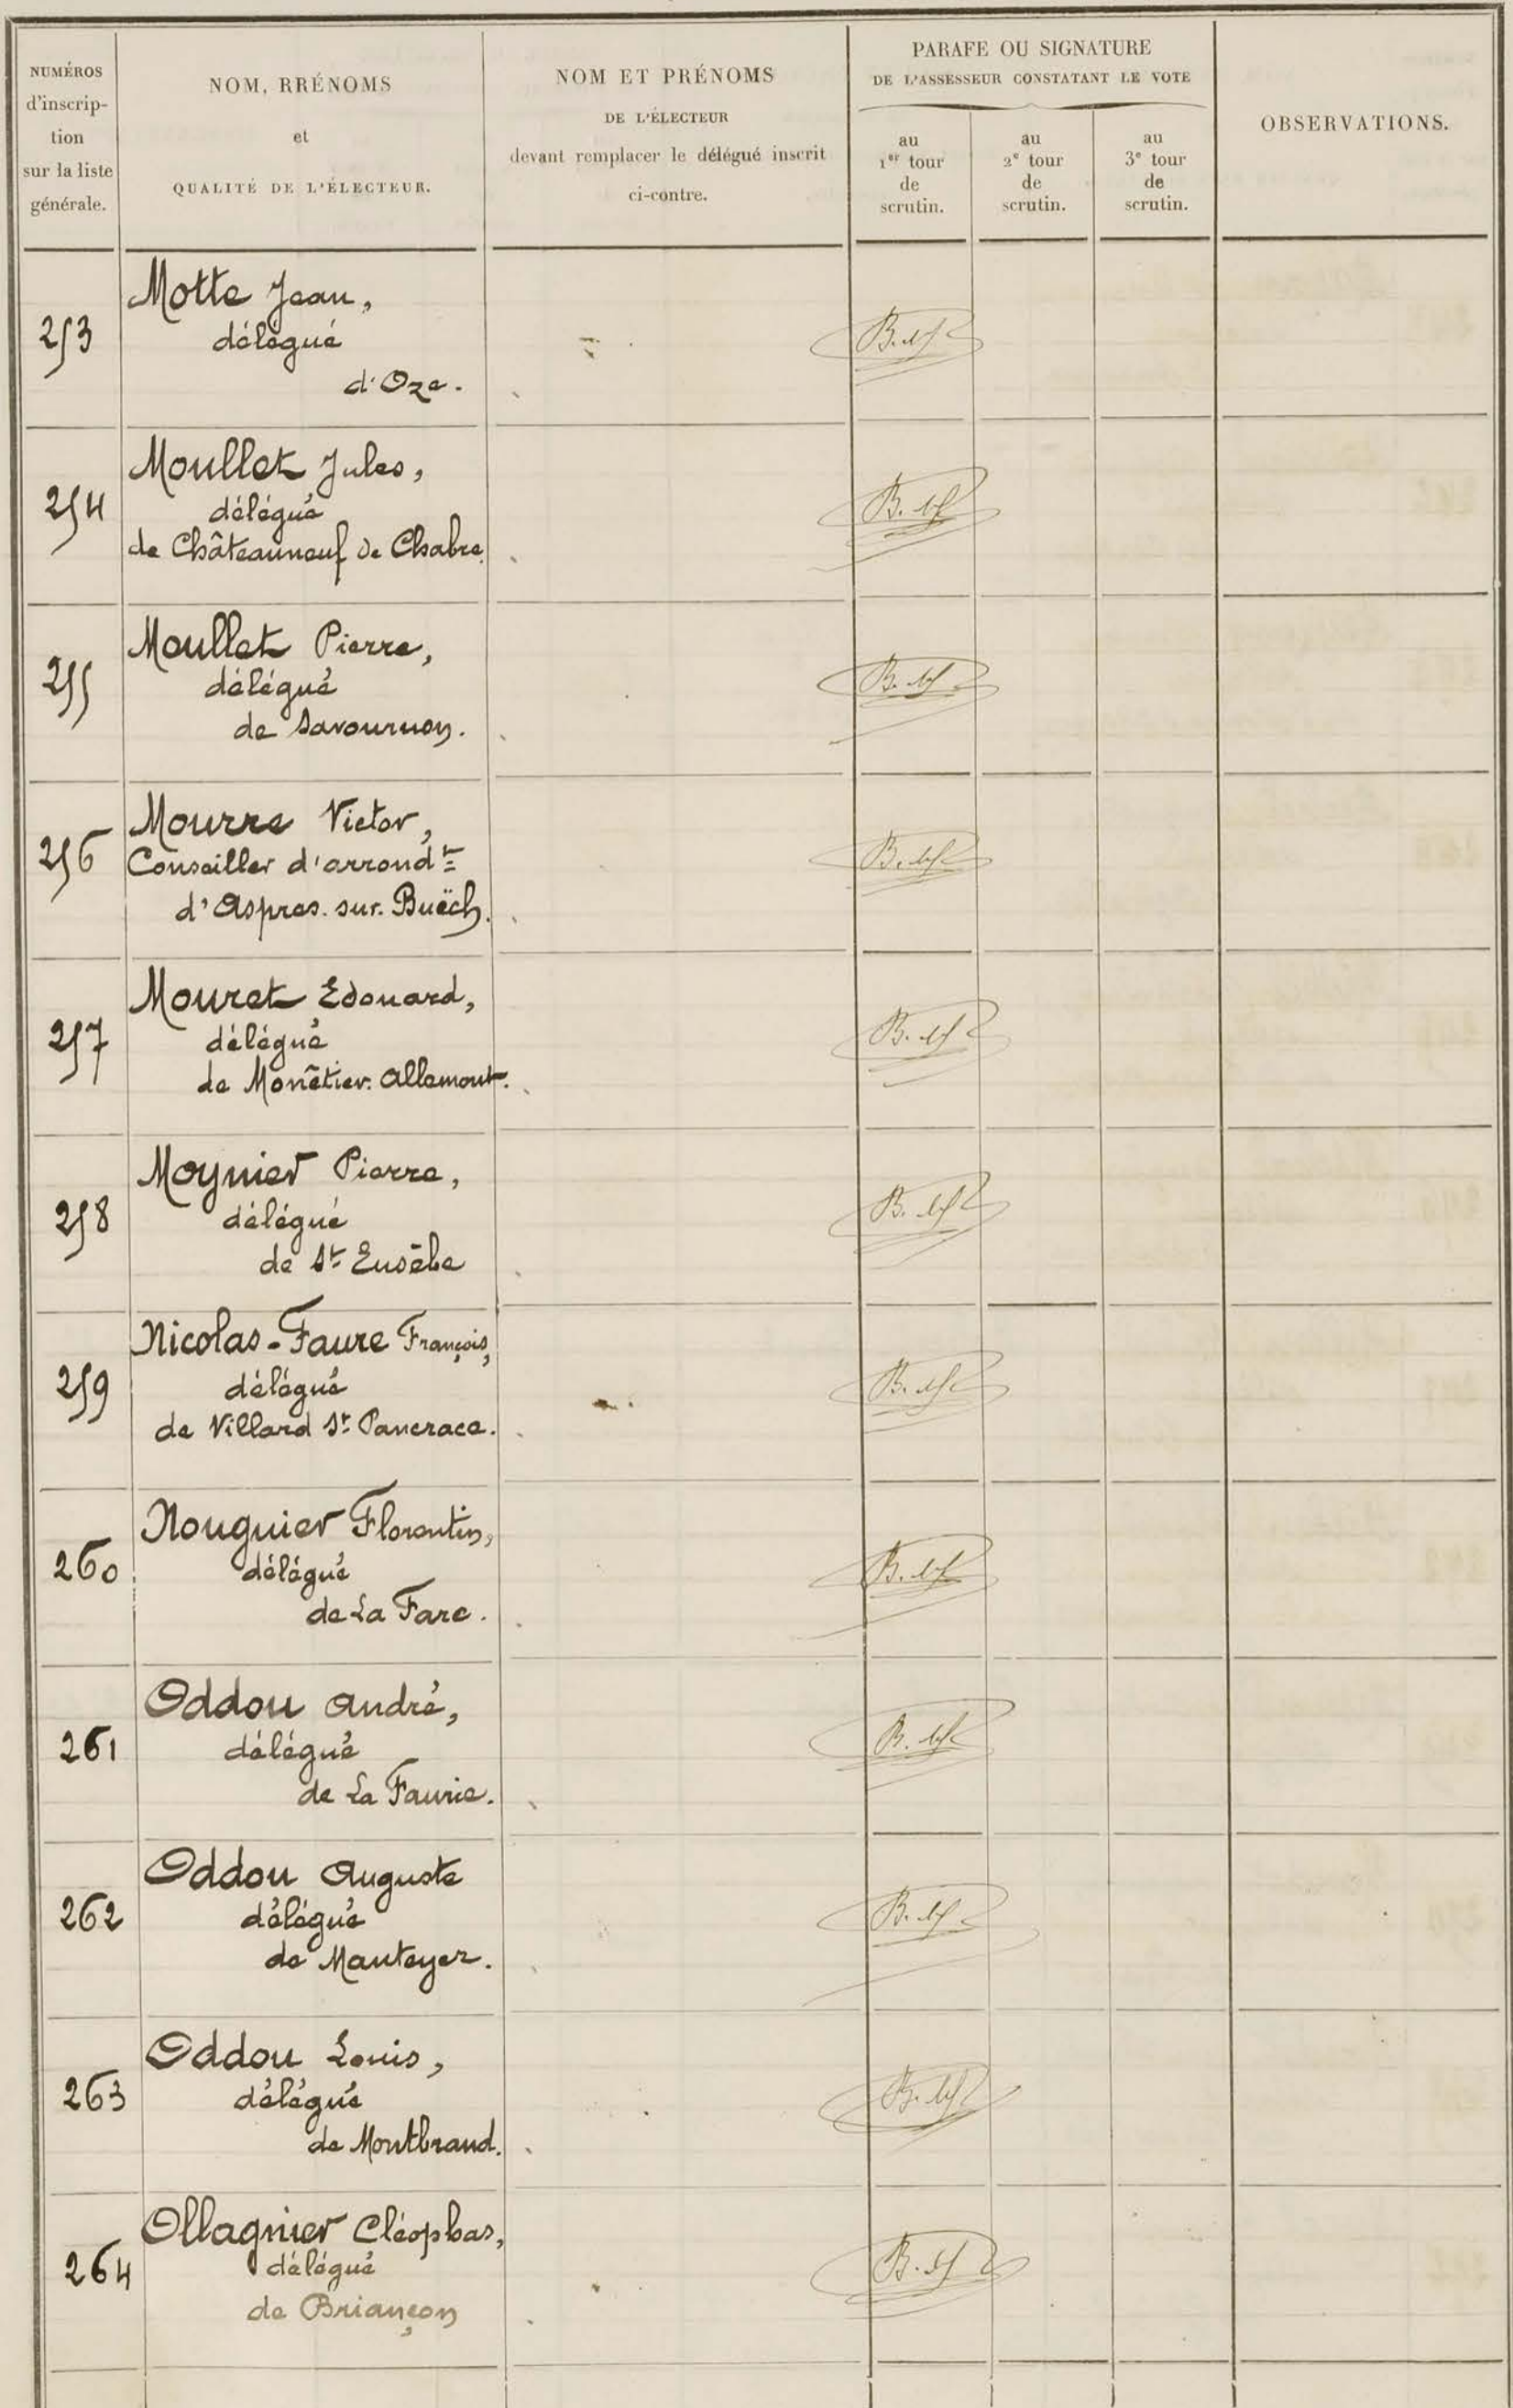 NUMÉROS
d'inscrip-
tion
sur la liste
générale.
NOM, RRÉNOMS
et
QUALITÉ DE L'ÉLECTEUR.
NOM ET PRÉNOMS
DE L'ÉLECTEUR
devant remplacer le délégué inscrit
ci-contre.
PARAFE OU SIGNATURE
DE L'ASSESSEUR CONSTATANT LE VOTE
au
1er tour
de
scrutin.
au
2e tour
de
scrutin.
au
3e tour
de
scrutin.
OBSERVATIONS.
253
Motte Jean,
délégué
d'Oze.
254
Moullet Jules,
délégué
de Châteauneuf de Chabre.
255
Moullet Pierre,
délégué
de Savournon.
256
Mourre Victor,
Conseiller d'arrondt
d'Aspres.sur.Buëch.
257
Mouret Edouard,
délégué
de Monêtier.Allemont.
258
Moynier Pierre,
délégué
de St Eusèbe
259
Nicolas-Faure François,
délégué
de Villard St Pancrace.
260
Nouguier Florentin,
délégué
de La Fare.
261
Oddou André,
délégué
de La Faurie.
262
Oddou Auguste
délégué
de Manteyer.
263
Oddou Louis,
délégué
de Montbrand.
264
Ollagnier Cléophas,
délégué
de Briançon